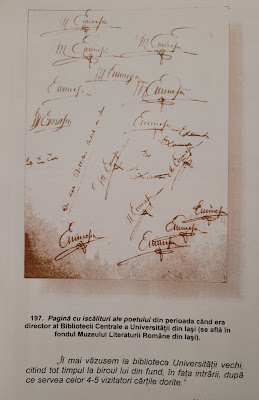 Eminescu
M. Eminescu Eminescu
M Eminescu
Eminescu Eminescu
M Eminescu Eminescu
M Eminescu
Eminescu
Eminescu
Eminescu
Eminescu
197. Pagină cu iscălituri ale poetului din perioada când era
director al Bibliotecii Centrale a Universităţii din Iaşi (se află în
fondul Muzeului Literaturii Române din Iaşi).
„Îi mai văzusem la biblioteca Universităţii vechi,
citind tot timpul la biroul lui din fund, în faţa intrării, după
ce servea celor 4-5 vizitatori cărţile dorite.”